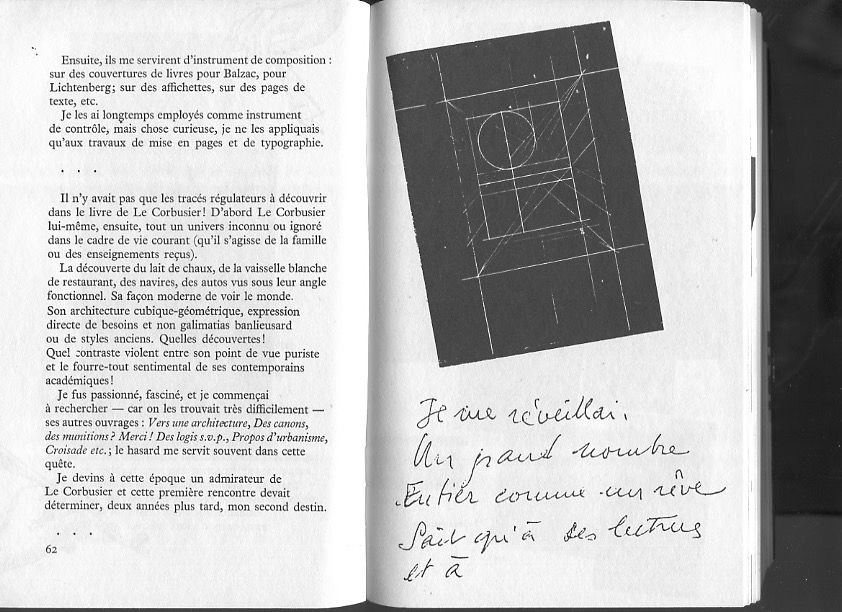 Ensuite, ils me servirent d'instrument de composition :
sur des couvertures de livres pour Balzac, pour
Lichtenberg; sur des affichettes, sur des pages de
texte, etc.
Je les ai longtemps employés comme instrument
de contrôle, mais chose curieuse, je ne les appliquais
qu'aux travaux de mise en pages et de typographie.
. . .
Il n'y avait pas que les tracés régulateurs à découvrir
dans le livre de Le Corbusier! D'abord Le Corbusier
lui-même, ensuite, tout un univers inconnu ou ignoré
dans le cadre de vie courant (qu'il s'agisse de la famille
ou des enseignements reçus).
La découverte du lait de chaux, de la vaisselle blanche
de restaurant, des navires, des autos vus sous leur angle
fonctionnel. Sa façon moderne de voir le monde.
Son architecture cubique-géométrique, expression
directe de besoins et non galimatias banlieusard
ou de styles anciens. Quelles découvertes!
Quel contraste violent entre son point de vue puriste
et le fourre-tout sentimental de ses contemporains
académiques!
Je fus passionné, fasciné, et je commençai
à rechercher — car on les trouvait très difficilement —
ses autres ouvrages : Vers une architecture, Des canons,
des munitions? Merci! Des logis s.v.p., Propos d'urbanisme,
Croisade etc.; le hasard me servit souvent dans cette
quête.
Je devins à cette époque un admirateur de
Le Corbusier et cette première rencontre devait
déterminer, deux années plus tard, mon second destin.
. . .
62
Je me réveillai.
Un grand nombre
Entier comme un rêve
Sait qu'à des lectrus
et à